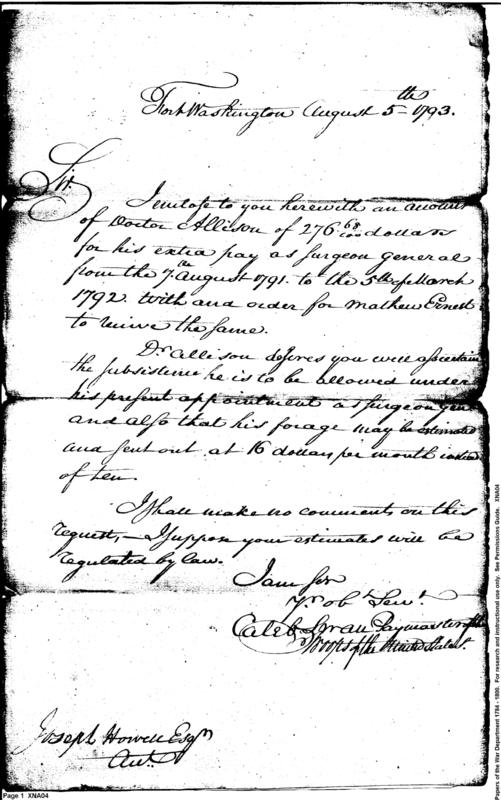 Fort Washington August 5th 1793.
Sir.
I enclose to you herewith an amount
of Doctor Allison of 276 68/100 dollars
for his extra pay as surgeon general
from the 7th August 1791. to the 5th of March
1792. with and order for Mathew Ernest
to receive the same.
Dr. Allison desires you will ascertain
the subsistence he is to be allowed under
his present appointment as surgeon gen
and also that his forage may be estimated
and sent out at 16 dollars per month instead
of ten.
I shall make no comments on this
request,— I suppose your estimates will be
regulated by law.
I am Sir
Yr obt Servt.
Caleb Swan Paymaster of the
Troops of the United States.
Joseph Howell Esqr
Page 1 XNA04
Papers of the War Department 1784 - 1800. For research and instructional use only. See Permissions Guide. XNA04